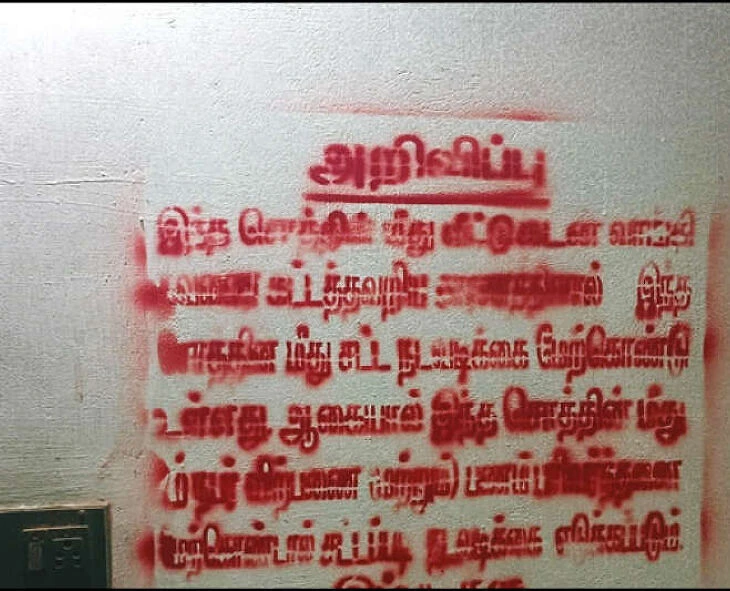 அறிவிப்பு
இந்த சொத்தின் மீது வீட்டுகடன் வாங்கி
கட்டத்தவறிய காரணத்தினால் இந்த
சொத்தின் மீது சட்ட நடவடிக்கை மேற்கொண்டு
உள்ளது. ஆகையால் இந்த சொத்தின் மீது
விற்பனை (மற்றும்) பணம் பரிவர்த்தனை
மேற்கொண்டால் சட்டப்படி நடவடிக்கை எடுக்கப்படும்.